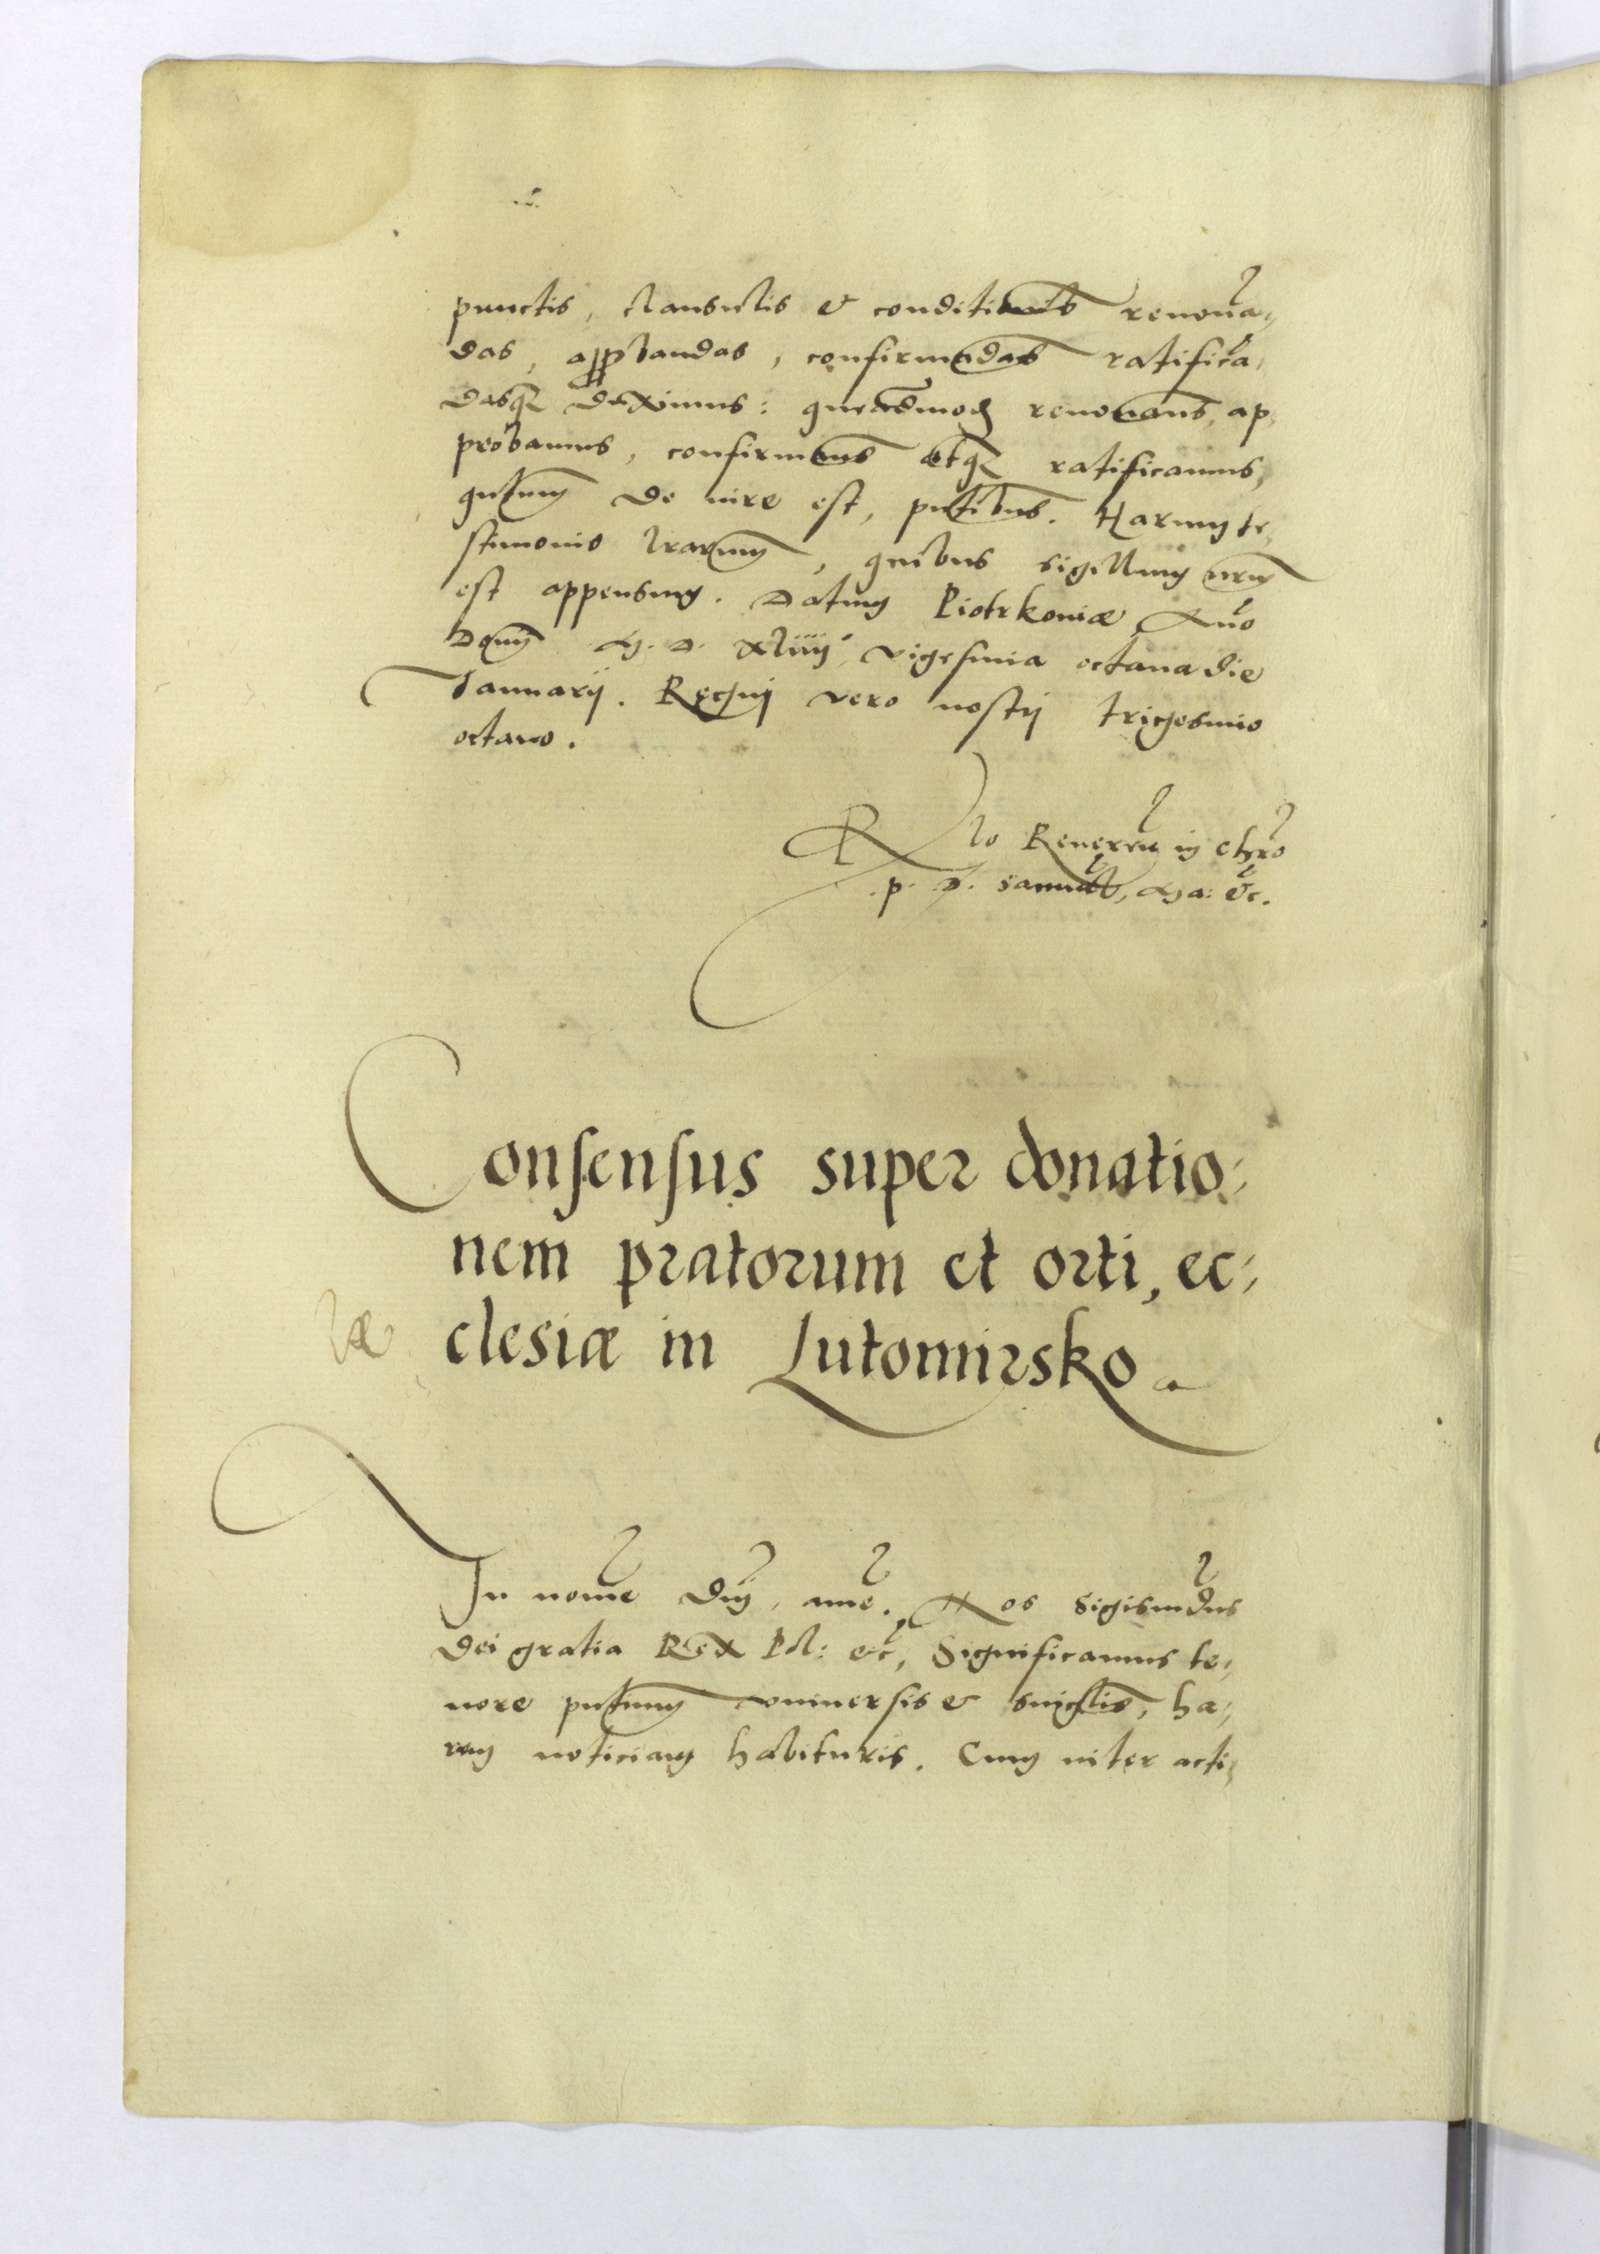 punctis, clausulis & conditioīb renoūa-
das, apṗbandas, confirmādas ratificā-
dasq duximus: queādmod renouam̄s, ap-
probamus, confirmam̄s atq ratificamus,
quātum de iure est, pn̄tibus. Harum te-
stimonio lrārum, quibus sigillum nr̄m
est appensum. Datum Piotrkouiæ, An̄o
Dom̄ M. D. xliiij, vigesima octaua die
Januarij. Regni vero nostri trigesimo
octauo.
Rlo Reuereñ in chrō
.p. D. Samuel, Ma: &c.
Consensus super donatio-
nem pratorum et orti, ec-
clesiæ in Lutomirsko.
læ
In nom̄e Dn̄i, amē. Nos Sigismūdus
Dei gratia Rex Pol: &c, Significamus te-
nore pn̄tium vniuersis & singl̄is, ha-
rum noticiam habituris. Cum inter acti-